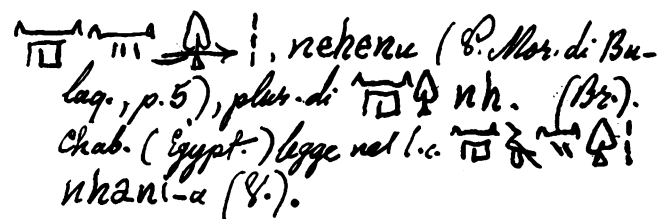 , nehenu (P. Mor. di Bu-
laq., p. 5), plur. di 𓈖𓉔𓆭 nh. (Br.).
Chab. (Égypt.) legge nel l.c.
nhani-a (P.).